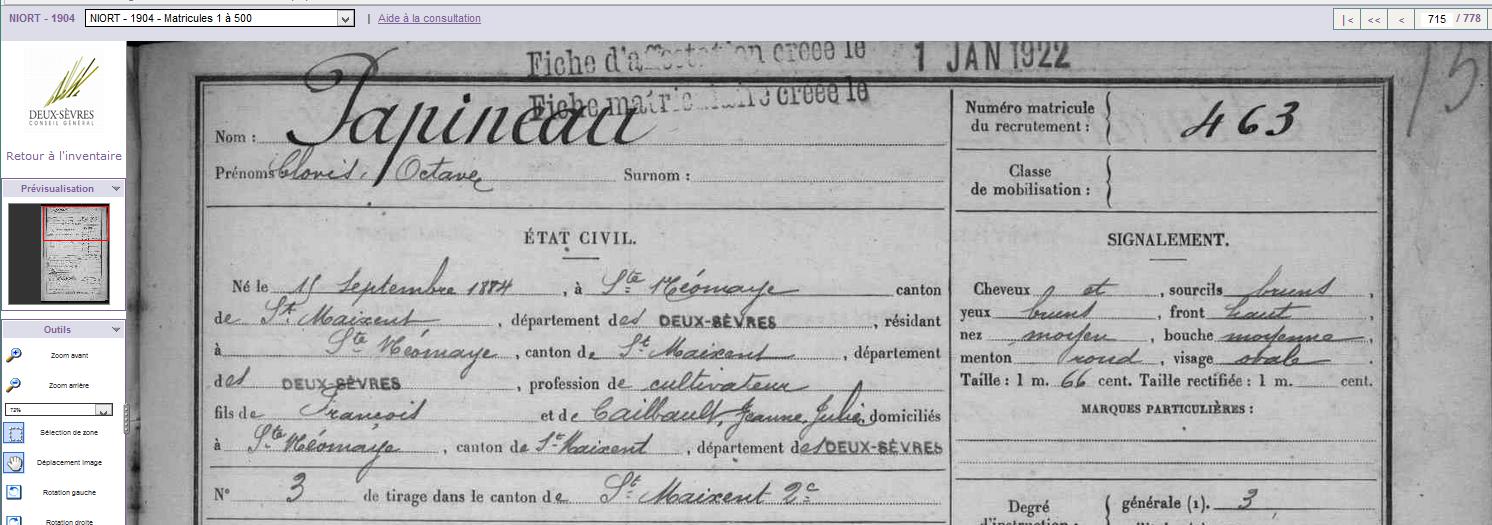 NIORT - 1904
NIORT - 1904 - Matricules 1 à 500
| Aide à la consultation
|< << < 715 / 778
DEUX-SÈVRES
CONSEIL GÉNÉRAL
Retour à l'inventaire
Prévisualisation
Outils
Zoom avant
Zoom arrière
72%
Sélection de zone
Déplacement image
Rotation gauche
Rotation droite
Fiche d'affectation créée le 1 JAN 1922
Fiche matriculaire créée le
Nom : Papineau
Prénoms Clovis, Octave Surnom :
Numéro matricule
du recrutement : 463
Classe
de mobilisation :
ÉTAT CIVIL.
Né le 15 Septembre 1884, à Ste Néomaye canton
de St Maixent, département des DEUX-SÈVRES, résidant
à Ste Néomaye, canton de St Maixent, département
des DEUX-SÈVRES, profession de cultivateur
fils de François et de Cailbault, Jeanne, Julie, domiciliés
à Ste Néomaye, canton de St Maixent, département des DEUX-SÈVRES
N° 3 de tirage dans le canton de St Maixent 2e
SIGNALEMENT.
Cheveux et, sourcils bruns,
yeux bruns, front haut,
nez moyen, bouche moyenne,
menton rond, visage ovale.
Taille : 1 m. 66 cent. Taille rectifiée : 1 m. cent.
MARQUES PARTICULIÈRES :
Degré
d'instruction :
générale (1). 3
15